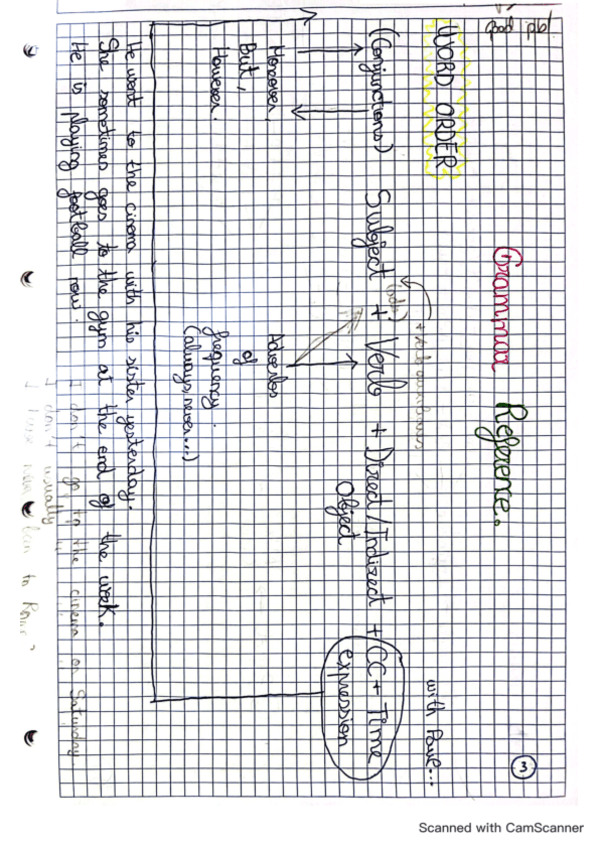 Grammar Reference.
3
WORD ORDER
with Pave...
+ Aux auxiliars
(adv)
(Conjunctions) Subject + Verb + Direct/Indirect + CC + Time
Object
expression
Moreover,
But,
However.
Adverbs
of
frequency.
(always, never...)
He went to the cinema with his sister yesterday.
She sometimes goes to the gym at the end of the week.
He is playing football now.
I don't go to the cinema on Saturday
I don't usually
Scanned with CamScanner